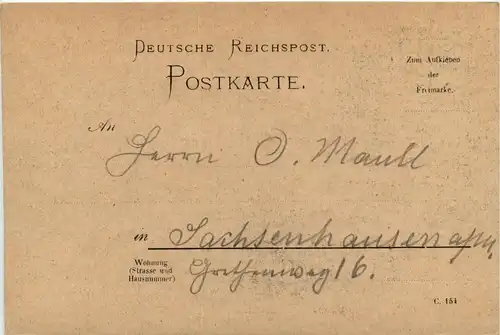 DEUTSCHE REICHSPOST.
POSTKARTE.
Zum Aufkleben
der
Freimarke.
An
Herrn O. Maull
in Sachsenhausen a/M,
Wohnung
(Strasse und
Hausnummer)
Grethenweg 16.
C. 154